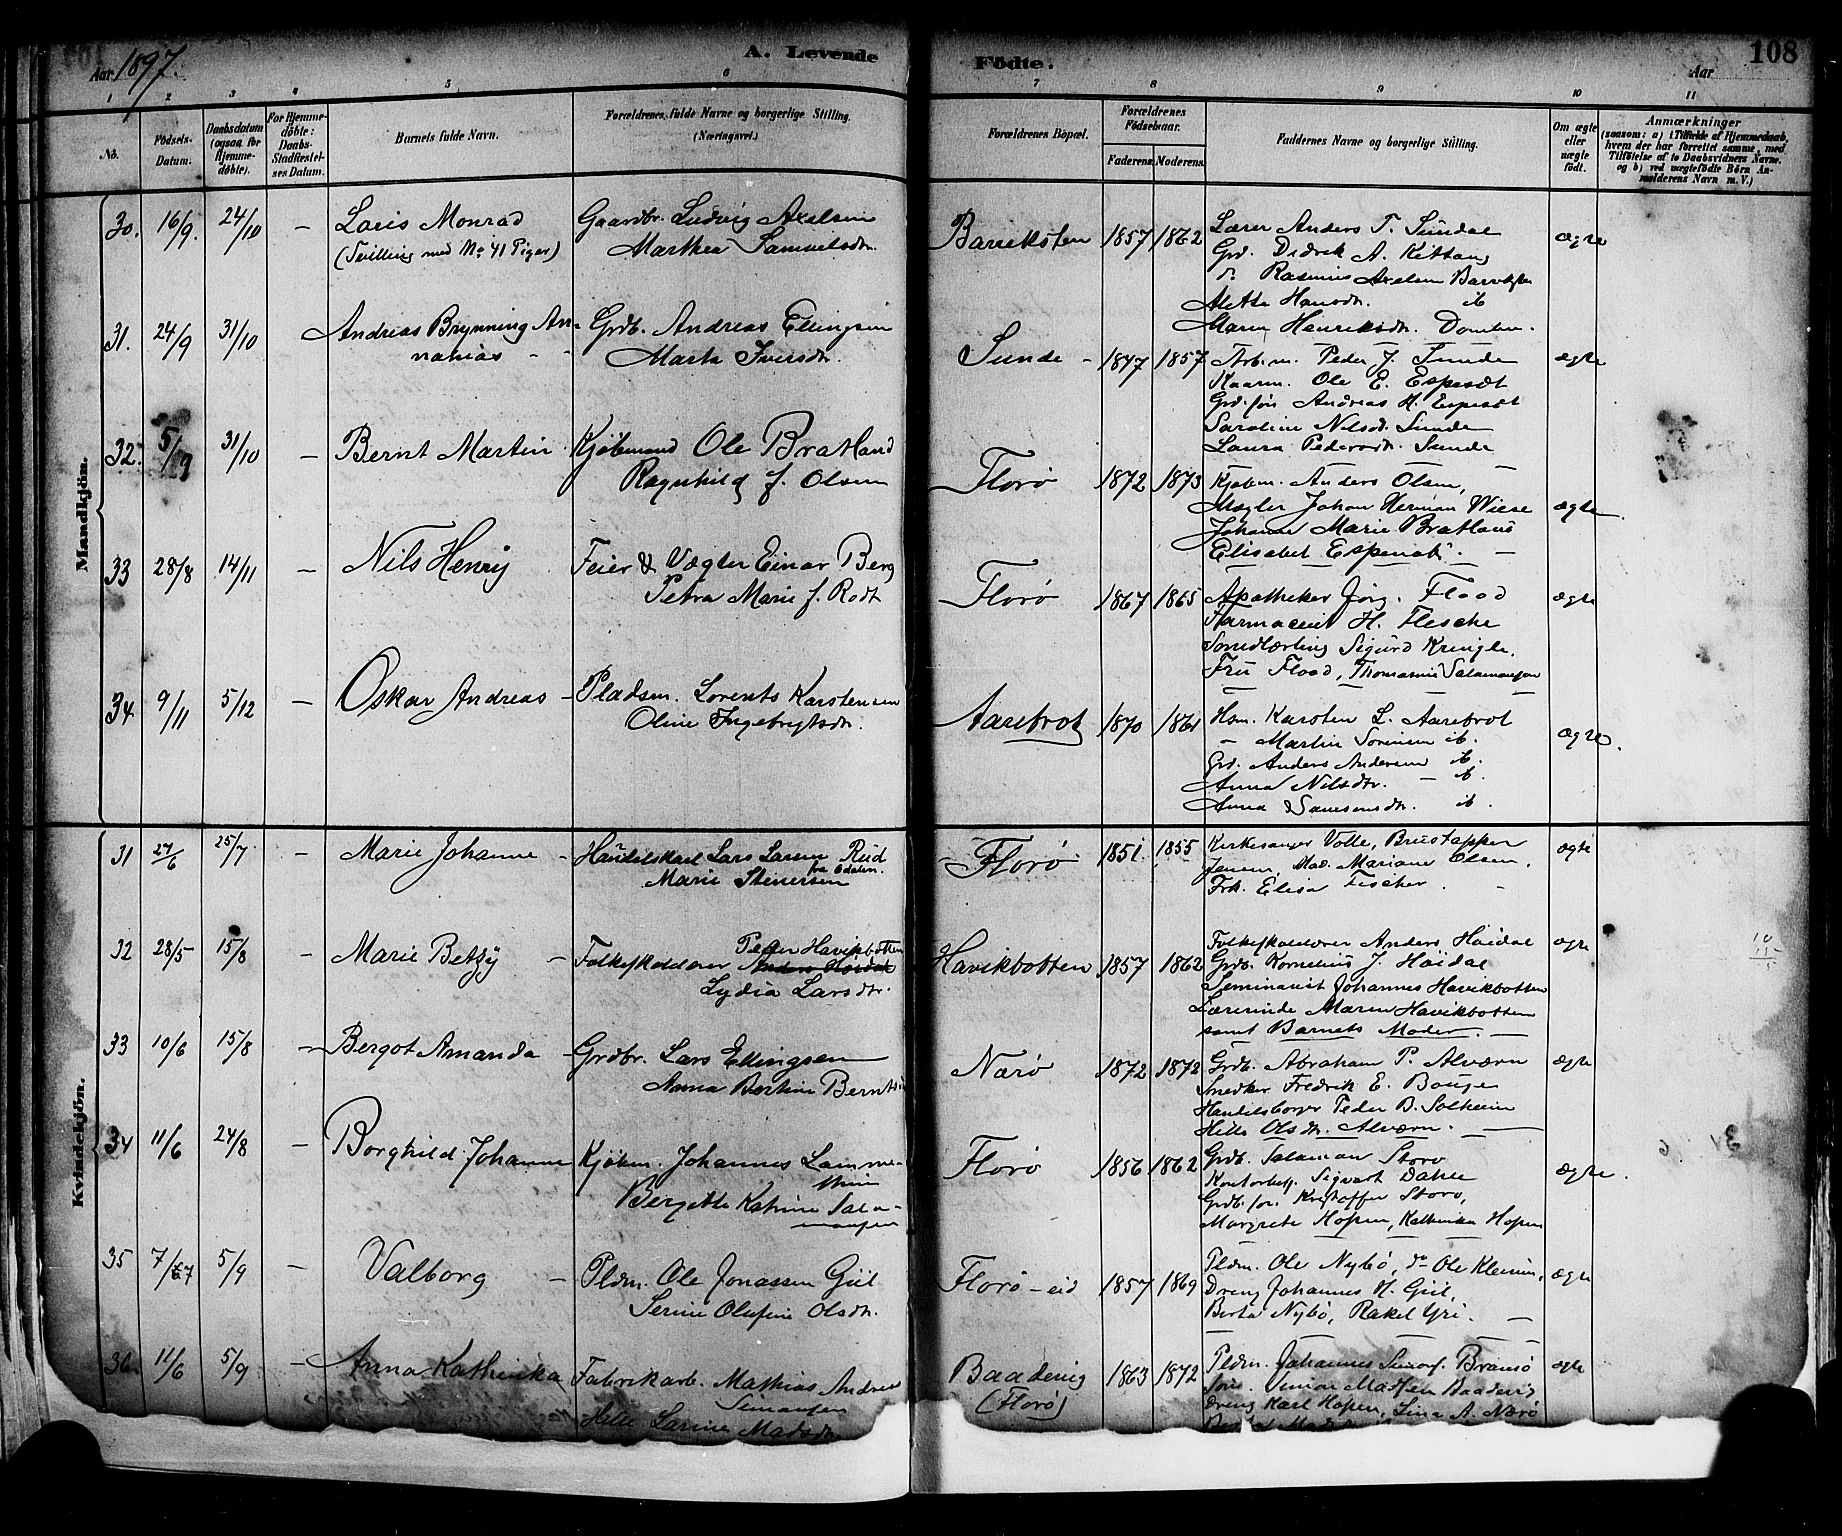 Aar 1897.
A. Levende
Födte.
Aar
108
1 2 3 4 5 6 7 8 9 10 11
No.
Födsels-Datum.
Daabsdatum (ogsaa for Hjemme-döbte).
For Hjemme-döbte: Daabs-Stadfæstel-ses Datum.
Barnets fulde Navn.
Forældrenes fulde Navne og borgerlige Stilling. (Næringsvei.)
Forældrenes Bopæl.
Forældrenes Födselsaar.
Faderens. Moderens.
Faddernes Navne og borgerlige Stilling.
Om ægte eller uægte födt.
Anmærkninger
(saasom: a) i Tilfælde af Hjemmedaab, hvem der har forrettet samme, med Tilföielse af to Daabsvidners Navne, og b) ved uægtefödte Börn An-melderens Navn m. V.)
Mandkjön.
30. 16/9. 24/10 – Laris Monrad
(Tvilling med No 41 Piger)
Gaardbr. Ludvig Axelsen
Marthea Samuelsdtr.
Barreksten 1857 1862
Lærer Anders T. Sundal
Grd. Didrik A. Kittang
do. Rasmus Axelsen Barreksten
Alette Hansdtr. ib
Maren Henriksdtr. Domben
ægte
31. 24/9 31/10 Andreas Brynning An-
nanias – –
Grdb. Andreas Ellingsen
Marta Iversdtr.
Sunde – 1847 1857
Arb.m. Peder J. Sunde
Kaarm. Ole E. Espeset
Grd.søn Andreas H. Espeset
Saroline Nilsd. Sunde
Laura Pedersdtr. Sunde
ægte
32. 5/9 31/10 – Bernt Martin
Kjöbmand Ole Bratland
Ragnhild f. Olsen
Florø 1872 1873
Kjøbm. Anders Olsen,
Mægler Johan Herman Wiese
Johanne Marie Bratland
Elisabet Espeset. –
ægte.
33 28/8 14/11 – Nils Henry
Feier & Vægter Einar Berg
Petra Marie f. Rodt
Florø 1867 1865
Apotheker Jörg. Flood
Farmaceut H. Flesche
Smedlærling Sigurd Kringle.
Fru Flood, Thomasine Salamonsen
ægte
34 9/11 5/12 – Oskar Andreas –
Pladsm. Lorents Karstensen
Oline Ingebrigtsdtr.
Aarebrot 1870 1861
Hsm. Karsten L. Aarebrot
– Martin Sörensen ib.
Grd. Anders Andersen ib.
Anna Nilsdtr. – ib.
Anna Samsonsdtr. ib.
ægte.
Kvindekjön.
31 27/6 25/7 – Marie Johanne –
Handelskarl Lars Larsen Rud
fra Odalen.
Marie Stenersen
Florø 1851. 1855
Kirkesanger Volle, Brustapper
Jensen, Mad. Mariane Olsen.
Frk. Elisa Fischer. –
ægte
32 28/5 15/8 – Marie Betsy –
Peder Havikbotten
Folkeskolelærer Anders Höidal
Lydia Larsdtr.
Havikbotten 1857 1862
Folkeskolelærer Anders Höidal
Grdb. Kornelius J. Höidal
Seminarist Johannes Havikbotten
Lærerinde Maren Havikbotten
samt Barnets Moder. –
ægte
33 10/6 15/8 – Bergot Amanda –
Grdbr. Lars Ellingsen
Anna Bertine Berntsd
Nærø 1872 1872
Grdb. Abraham P. Alværn
Snedker Fredrik E. Bauge
Handelsborger Peder B. Solheim
Hille Olsdtr. Alværn. –
ægte
34 11/6 24/8 – Borghild Johanne
Kjöbm. Johannes Lamme-
thun
Bergitte Katrine Salo-
monsen
Florø 1856 1862
Grdb. Salaman Storø
Kontorbetj. Sigvart Dahle
Grdb.søn. Kristoffer Storø,
Margrete Hopen, Kathinka Hopen
ægte.
35 7/7 5/9 – Valborg –
Pldm. Ole Jonassen Giil
Serine Olufine Olsdtr.
Florø-eid 1857 1869
Pldm. Ole Nybø, do Ole Kleiven,
Dreng Johannes H. Giil,
Berta Nybø, Rakel Yri. –
ægte
36. 11/6 5/9 – Anna Kathinka
Fabrikarb. Mathias Andreas
Simonsen
Hille Larine Madsdtr
Baadevig 1863 1872
(Florø)
Pldm. Johannes Simons. Brandsø
Søn. Simon Madsen Baadevig
Dreng Karl Hopen, Lina A. Nærø
ægte